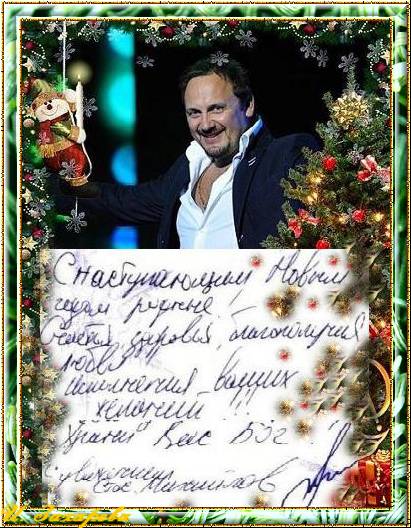 С наступающим Новым
годом родные!
Счастья, здоровья, благополучия
любви!!!
исполнения ваших
желаний!!!
Храни Вас Бог!!!
С уважением
Стас Михайлов